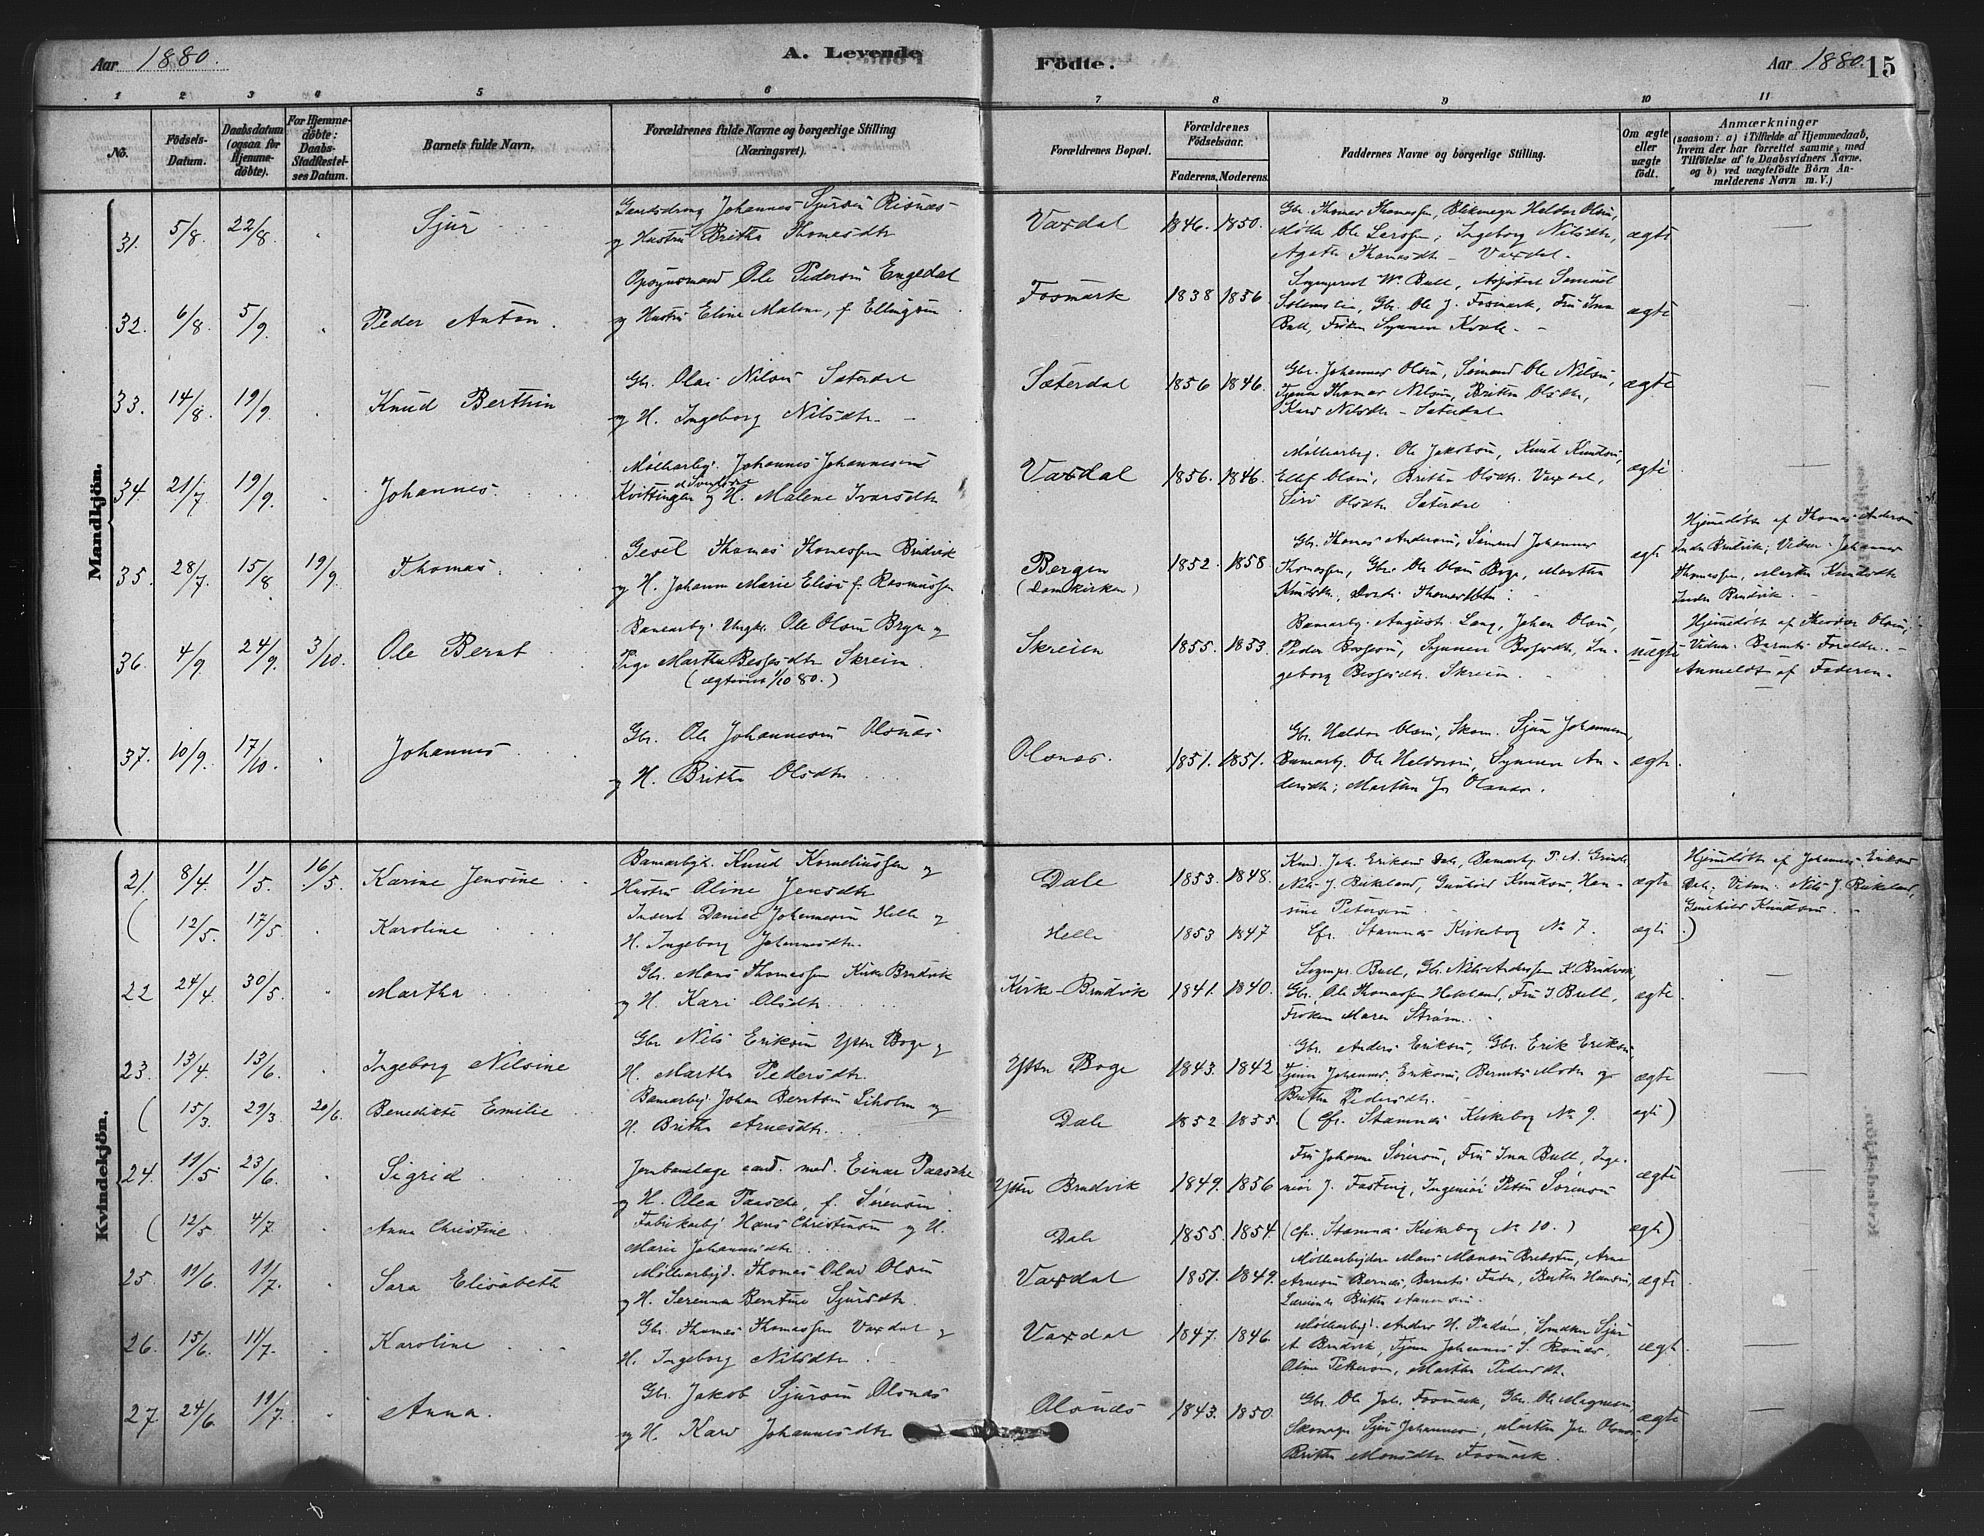 Aar 1880. A. Levende Fødte. Aar 1880. 15
1 2 3 4 5 6 7 8 9 10 11
No. Fødsels-Datum. Daabsdatum (ogsaa for Hjemmedøbte). For Hjemmedøbte: Daabs-Stadfæstelses Datum. Barnets fulde Navn. Forældrenes fulde Navne og borgerlige Stilling (Næringsvei). Forældrenes Bopæl. Forældrenes Fødselsaar. Faderens. Moderens. Faddernes Navne og borgerlige Stilling. Om ægte eller uægte født. Anmærkninger (saasom: a) i Tilfælde af Hjemmedaab, hvem der har forrettet samme, med Tilføielse af to Daabsvidners Navne. og b) ved uægtefødte Børn Anmelderens Navn m. V.)
Mandkjøn.
31. 5/8. 22/8. Sjur Johannes Sjursen Risnæs
og Hustru Britha Thomasdtr. Vaxdal 1846. 1850. Gbr. Thomas Thomassen, Haldor Olsen,
Ole Larsen, Ingeborg Nilsdtr, ægte
Agathe Thomasdtr - Vaxdal.
32. 6/8. 5/9. Peder Anton. Opsynsmand Ole Pedersen Engedal
og Hustru Eline Malene, f. Ellingsen. Fosmark 1838 1856 Sogneprest W. Bull, Samuel
Gbr. Ole J. Fosmark, Fru Ina ægte
Bull, Frøken Synneve Kvale.
33. 14/8. 19/9. Knud Berthin Gbr. Olai Nilsen Sæterdal
og H. Ingeborg Nilsdtr. Sæterdal 1856 1846. Gbr. Johannes Olsen, Sømand Ole Nilsen, ægte
Tjener Thomas Nilsen, Britha Olsdtr,
Kari Nilsdtr - Sæterdal.
34. 21/7. 19/9. Johannes. Møllearby. Johannes Johannesen
Kvittingen og H. Malene Ivarsdtr. Vaxdal 1856. 1846. Møllearby. Ole Jakobsen, Knud Knudsen,
Ellef Olsen, Britha Olsdtr. Vaxdal, ægte
Siri Olsdtr Sæterdal
35. 28/7. 15/8. 19/9. Thomas. Thomas Thomassen Brudvik
og H. Johanne Marie Elise f. Rasmussen Bergen (Domkirken) 1852. 1858. Gbr. Thomas Andersen, Sømand Johannes
Thomassen, Gbr. Ole Olsen Boge, Martha ægte
Knudsdtr, Thomasdtr.
Hjemmedøbt af Thomas Andersen
Indre Brudvik; Vidner: Johannes
Thomassen, Martha Knudsdtr
Indre Brudvik.
36. 4/9. 24/9. 3/10. Ole Bernt Banearby. Ungk. Ole Olsen Bryn og
Pige Martha Skreien. Skreien 1855. 1853. Banearby. August Lang, Johan Olsen,
Peder Synneve In- uægte
geborg Skreien.
Hjemmedøbt af Theodor Olsen;
Vidner: Barnets Forældre.
Anmeldt af Faderen.
37. 10/9. 17/10. Johannes Gbr. Ole Johannesen Olsnæs
og H. Britha Olsdtr. Olsnæs. 1851. 1851. Gbr. Haldor Olsen, Skom. Sjur Johannesen,
Banearby. Ole Haldorsen, Synneve An- ægte
dersdtr; Martha Js Olsnæs.
Kvindekjön.
21. 8/4. 1/5. 16/5. Karine Jensine Banearbejd. Knud Korneliussen og
Hustru Oline Jensdtr. Dale 1853. 1848. Joh. Eriksen Dale, Banearby. P. A.
Nils J. Birkeland, Gunhild Knudsen, Han- ægte
sine Petersen
Hjemmedøbt af Johannes Eriksen
Dale; Vidner: Nils J. Birkeland,
Gunhild Knudsen.
( 12/5. 17/5. Karoline Inderst Daniel Johannesen Helle og
H. Ingeborg Johannesdtr. Helle 1853 1847 Cfr. Stamnæs Kirkebog No 7. ægte )
22 24/4. 30/5. Martha Gbr. Mons Thomassen Kirke Brudvik
og H. Kari Olsdtr. Kirke-Brudvik 1841. 1840. Sognepr. Bull, Gbr. Nils Andersen K. Brudvik,
Gbr. Ole Thomassen Fru I. Bull, ægte
Frøken Maren Strøm.
23. 13/4. 13/6. Ingeborg Nilsine Gbr Nils Eriksen Yttre Boge og
H. Martha Pedersdtr. Yttre Boge 1843. 1842 Gbr. Anders Eriksen, Gbr. Erik Eriksen,
Tjener Johannes Eriksen, Barnets Moder og ægte
Britha Pedersdtr.
( 15/3. 29/3. 20/6. Benedikte Emilie Banearbej. Johan Berntsen Liholm og
H. Britha Arnesdtr. Dale 1852 1855. (Cfr. Stamnæs Kirkebog No 9. ægte )
24. 11/5 23/6. Sigrid Jernbanelæge cand. med. Einar Paasche
og H. Olea Paasche, f. Sørensen. Yttre Brudvik 1849. 1856 Fru Johanne Sørensen, Fru Ina Bull, Inge-
niør J. Fasting, Ingeniør Petter Sørensen ægte
( 12/5 4/7. Anna Christine Fabrikarbej. Hans Christensen og H.
Marie Johannesdtr. Dale 1855. 1854. (Cfr. Stamnæs Kirkebog No 10.) ægte )
25. 11/6. 11/7. Sara Elisabeth Møllearbejd. Thomas Olai Olsen
og H. Serenna Berntine Sjursdtr. Vaxdal 1851. 1849. Møllearbejder Mons Monsen Arne
Arnesen Bernæs, Barnets Fader, Berthe Hansen, ægte
Lærerinde Britha
26. 15/6. 11/7. Karoline Gbr. Thomas Thomassen Vaxdal og
H. Ingeborg Nilsdtr. Vaxdal 1847. 1846. Møllearbej. Anders H. Smed Sjur
A. Brudvik, Tjener Johannes S. Risnæs, ægte
Oline Pettersen, Martha Pedersdtr.
27 24/6. 11/7. Anna. Gbr. Jakob Sjursen Olsnæs
og H. Kari Johannesdtr Olsnæs 1843. 1850. Gbr. Ole Joh. Fosmark, Gbr. Ole Magnesen,
Skomager Sjur Johannesen, Martha Joh. Olsnæs, ægte
Britha Monsdtr Fosmark.